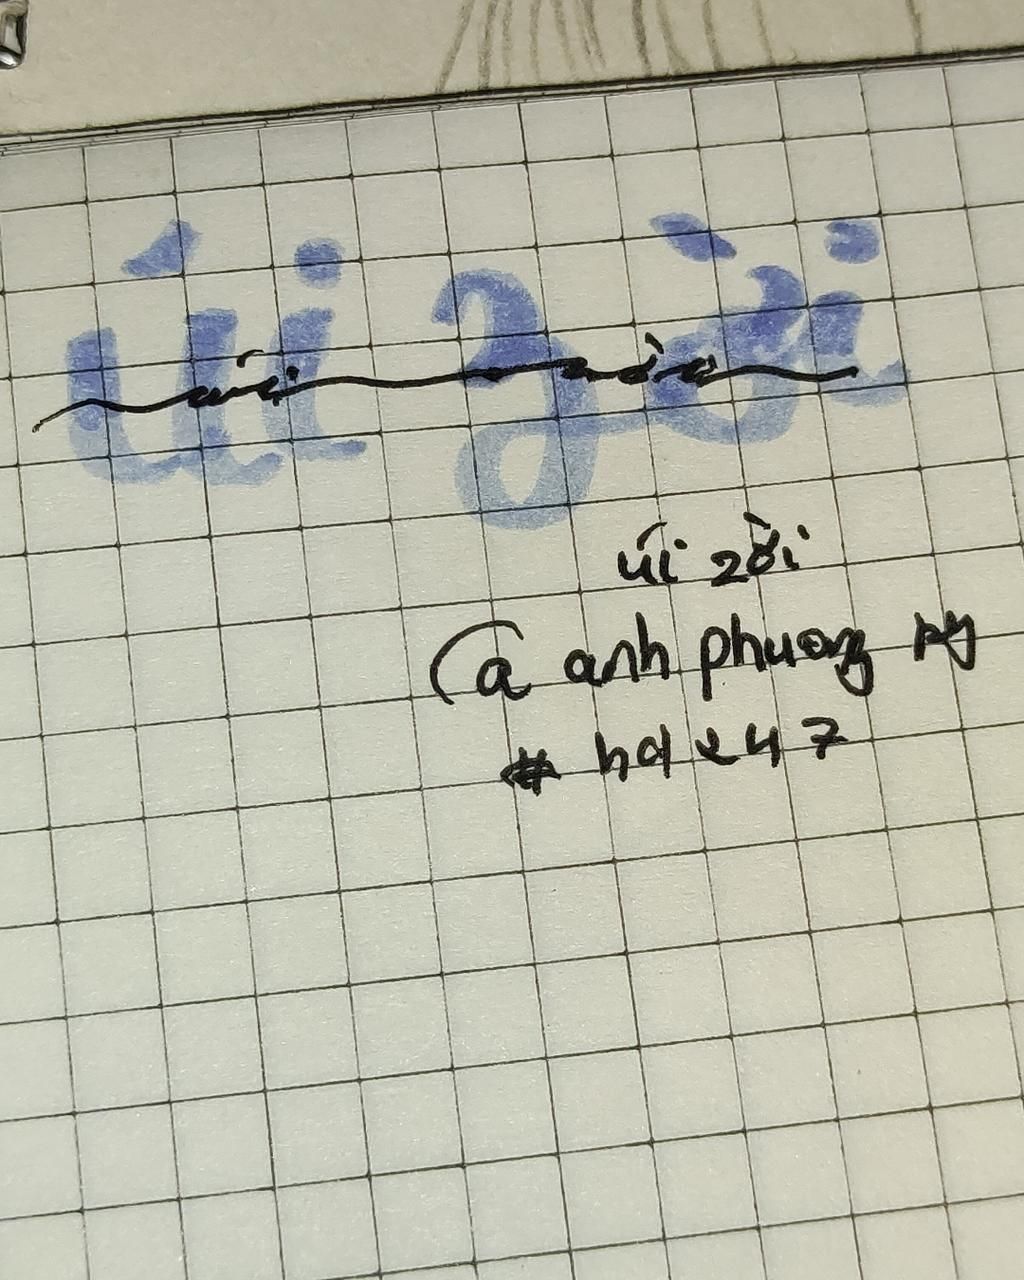 úi zời
úi zời
úi zời
@anhphuongny
#hdx47